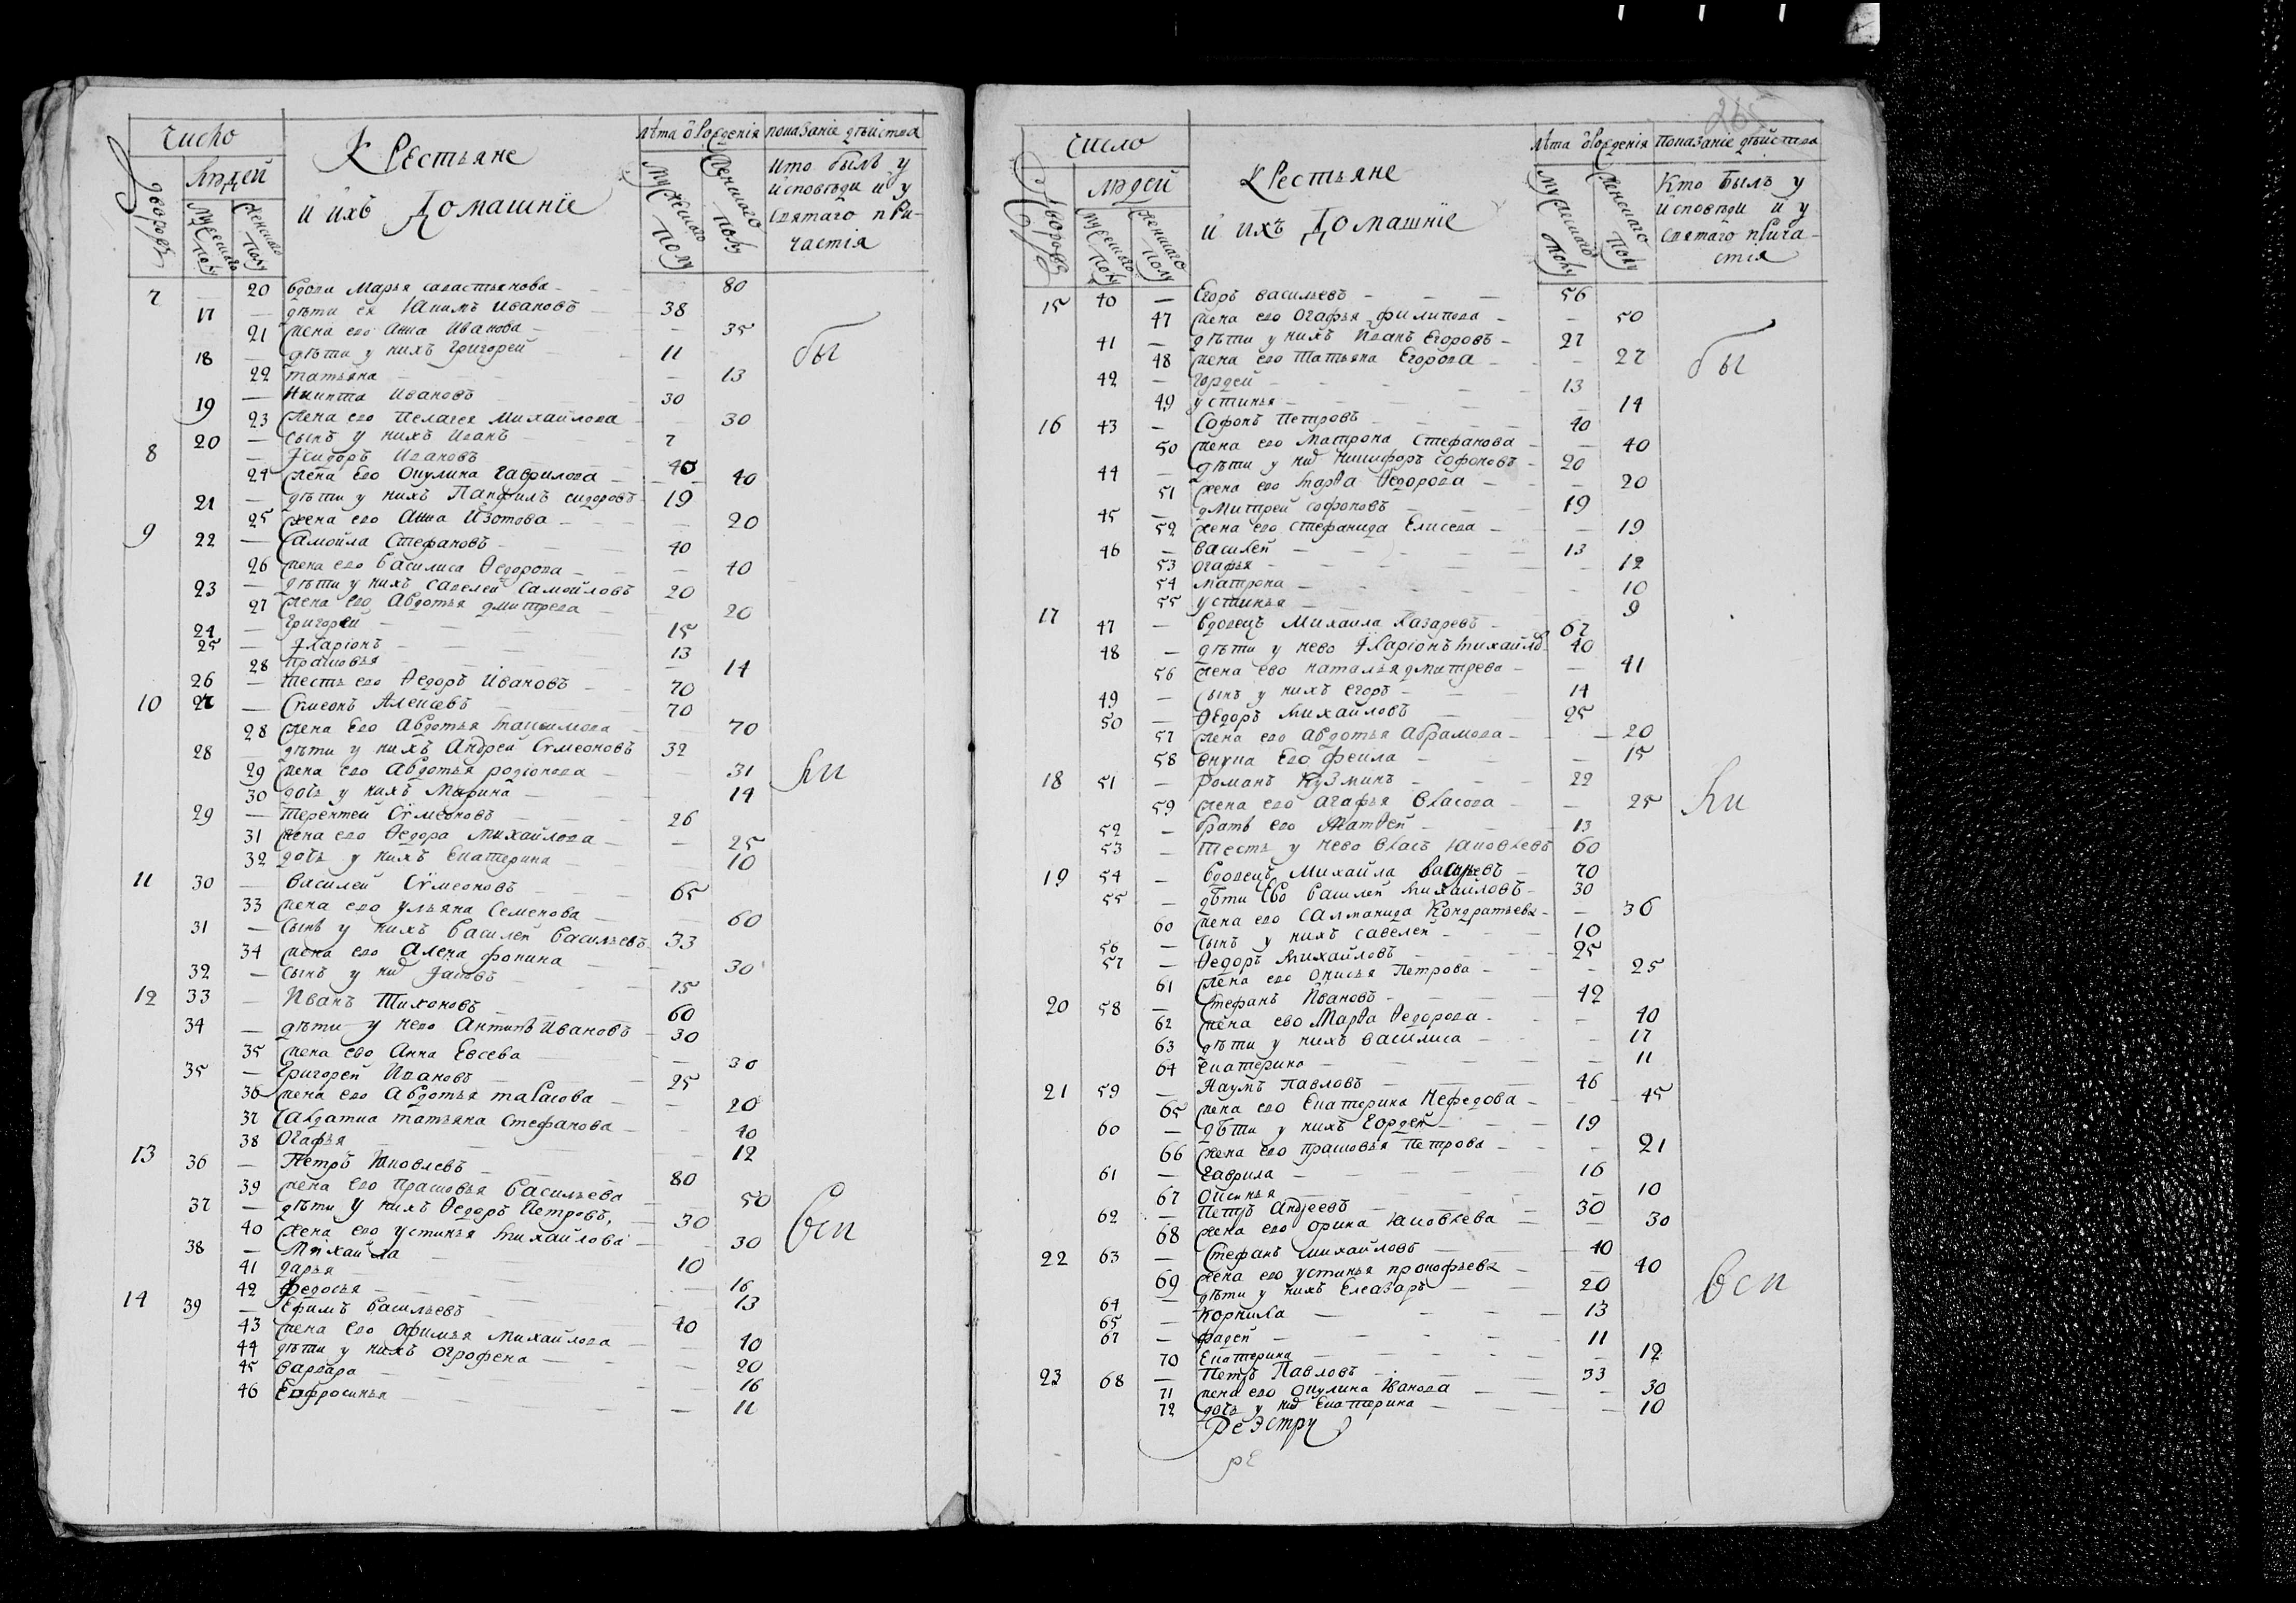 Число
Людей
дворовъ
мужеска полу
женскаго полу
Крестьяне
и ихъ Домашніе
лѣта ѿ рожденія
мужескаго полу
женскаго полу
показаніе дѣйства
кто былъ у
исповѣди и у
святаго при-
частія
7 — 20 вдова Марья савастьянова — 80
17 — дѣти ея Іакимъ Ивановъ — 38
21 жена ево Анна Иванова — 35
18 — дѣти у нихъ Григорей — 11
22 татьяна — 13
19 — Никита Ивановъ — 30
23 жена ево Пелагея Михайлова — 30
20 — сынъ у нихъ Иванъ — 7
8 — Исидоръ Ивановъ — 40
24 жена Ево Окулина Гаврилова — 40
21 — дѣти у нихъ Панфилъ сидоровъ 19
25 жена ево Анна Изотова — 20
9 22 — Самойла Стефановъ — 40
26 жена ево Василиса Ѳедорова — 40
23 — дѣти у нихъ савелей Самойловъ 20
27 жена ево Авдотья дмитрева — 20
24 — григореи — 15
25 — Іларіонъ — 13
28 прасковья — 14
26 — тесть ево Ѳедоръ Ивановъ — 70
10 27 — Сѵмеонъ Алексѣевъ — 70
28 жена Ево Авдотья максимова — 70
28 — дѣти у нихъ Андрей Сѵмеоновъ 32
29 жена ево Авдотья родіонова — 31
30 дочь у нихъ Марина — 14
29 — Терентей Сѵмеоновъ — 26
31 жена ево Ѳедора Михайлова — 25
32 дочь у нихъ Екатерина — 10
11 30 — василей Сѵмеоновъ — 65
33 жена ево ульяна Семенова — 60
31 — сынъ у нихъ Василей Васильевъ 33
34 жена ево Алена фокина — 30
32 — сынъ у них Іаковъ — 15
12 33 — Иванъ Тихоновъ — 60
34 — дѣти у нево Антипъ Ивановъ — 30
35 жена ево Анна Евсева — 30
35 — Григорей Ивановъ — 25
36 жена ево Авдотья тарасова — 20
37 Салдатка татьяна Стефанова — 40
38 Огафья — 12
13 36 — Петръ Яковлевъ — 80
39 жена ево прасковья Васильева — 50
37 — дѣти у нихъ Ѳедоръ Петровъ — 30
40 жена ево устинья михайлова — 30
38 — Михайла — 10
41 дарья — 16
42 федосья — 13
14 39 — Ефимъ Васильевъ — 40
43 жена Ево офимья Михайлова — 40
44 дѣти у нихъ огрофена — 20
45 варвара — 16
46 Ефросинья — 11
бы
ли
вси
265
Число
людей
дворовъ
мужескаго полу
женскаго полу
Крестьяне
и ихъ Домашніе
лѣта ѿ рожденія
мужескаго полу
женскаго полу
показаніе дѣйства
Кто былъ у
исповѣди и у
святаго прича-
стія
15 40 — Егоръ васильевъ — 56
47 жена ево Огафья филипова — 50
41 — дѣти у нихъ Иванъ Егоровъ — 27
48 жена ево Татьяна Егорова — 27
42 — гордей — 13
49 устинья — 14
16 43 — Софонъ Петровъ — 40
50 жена ево Матрона Стефанова — 40
44 — дѣти у них никифоръ софоновъ — 20
51 жена ево марѳа Ѳедорова — 20
45 — дмитрей софоновъ — 19
52 жена ево стефанида Елисева — 19
46 — василей — 13
53 огафья — 12
54 матрона — 10
55 устинья — 9
17 47 — вдовецъ Михаила Лазаревъ — 67
48 — дѣти у нево Іларіонъ михайлов 40
56 жена ево наталья дмитрева — 41
49 — сынъ у нихъ егоръ — 14
50 — Ѳедоръ михайловъ — 25
57 жена ево авдотья абрамова — 20
58 внука Ево фекла — 15
18 51 — романъ Кузминъ — 22
59 жена ево агафья власова — 25
52 — братъ ево Матвей — 13
53 — тесть у нево власъ Яковлевъ 60
19 54 — вдовецъ Михайла — 70
55 — дѣти Ево василей михайловъ — 30
60 жена ево саламанида Кондратьева — 36
56 — сынъ у нихъ савелей — 10
57 — Ѳедоръ михайловъ — 25
61 жена ево Онисья Петрова — 25
20 58 — Стефанъ Ивановъ — 42
62 жена ево Марѳа Ѳедорова — 40
63 дѣти у нихъ василиса — 17
64 екатерина — 11
21 59 — Наумъ Павловъ — 46
65 жена ево Екатерина Нефедова — 45
60 — дѣти у нихъ Гордей — 19
66 жена ево прасковья Петрова — 21
61 — гаврила — 16
67 Оксинья — 10
62 — Петръ Андреевъ — 30
68 жена ево орина Яковлева — 30
22 63 — Стефанъ михайловъ — 40
69 жена ево устинья прокофьева — 40
64 — дѣти у нихъ Елеазаръ — 20
65 — корнила — 13
67 — фадей — 11
70 Екатерина — 12
23 68 — Петръ Павловъ — 33
71 жена ево окулина Иванова — 30
72 дочь у них Екатерина — 10
Реэстру
ре
бы
ли
вси